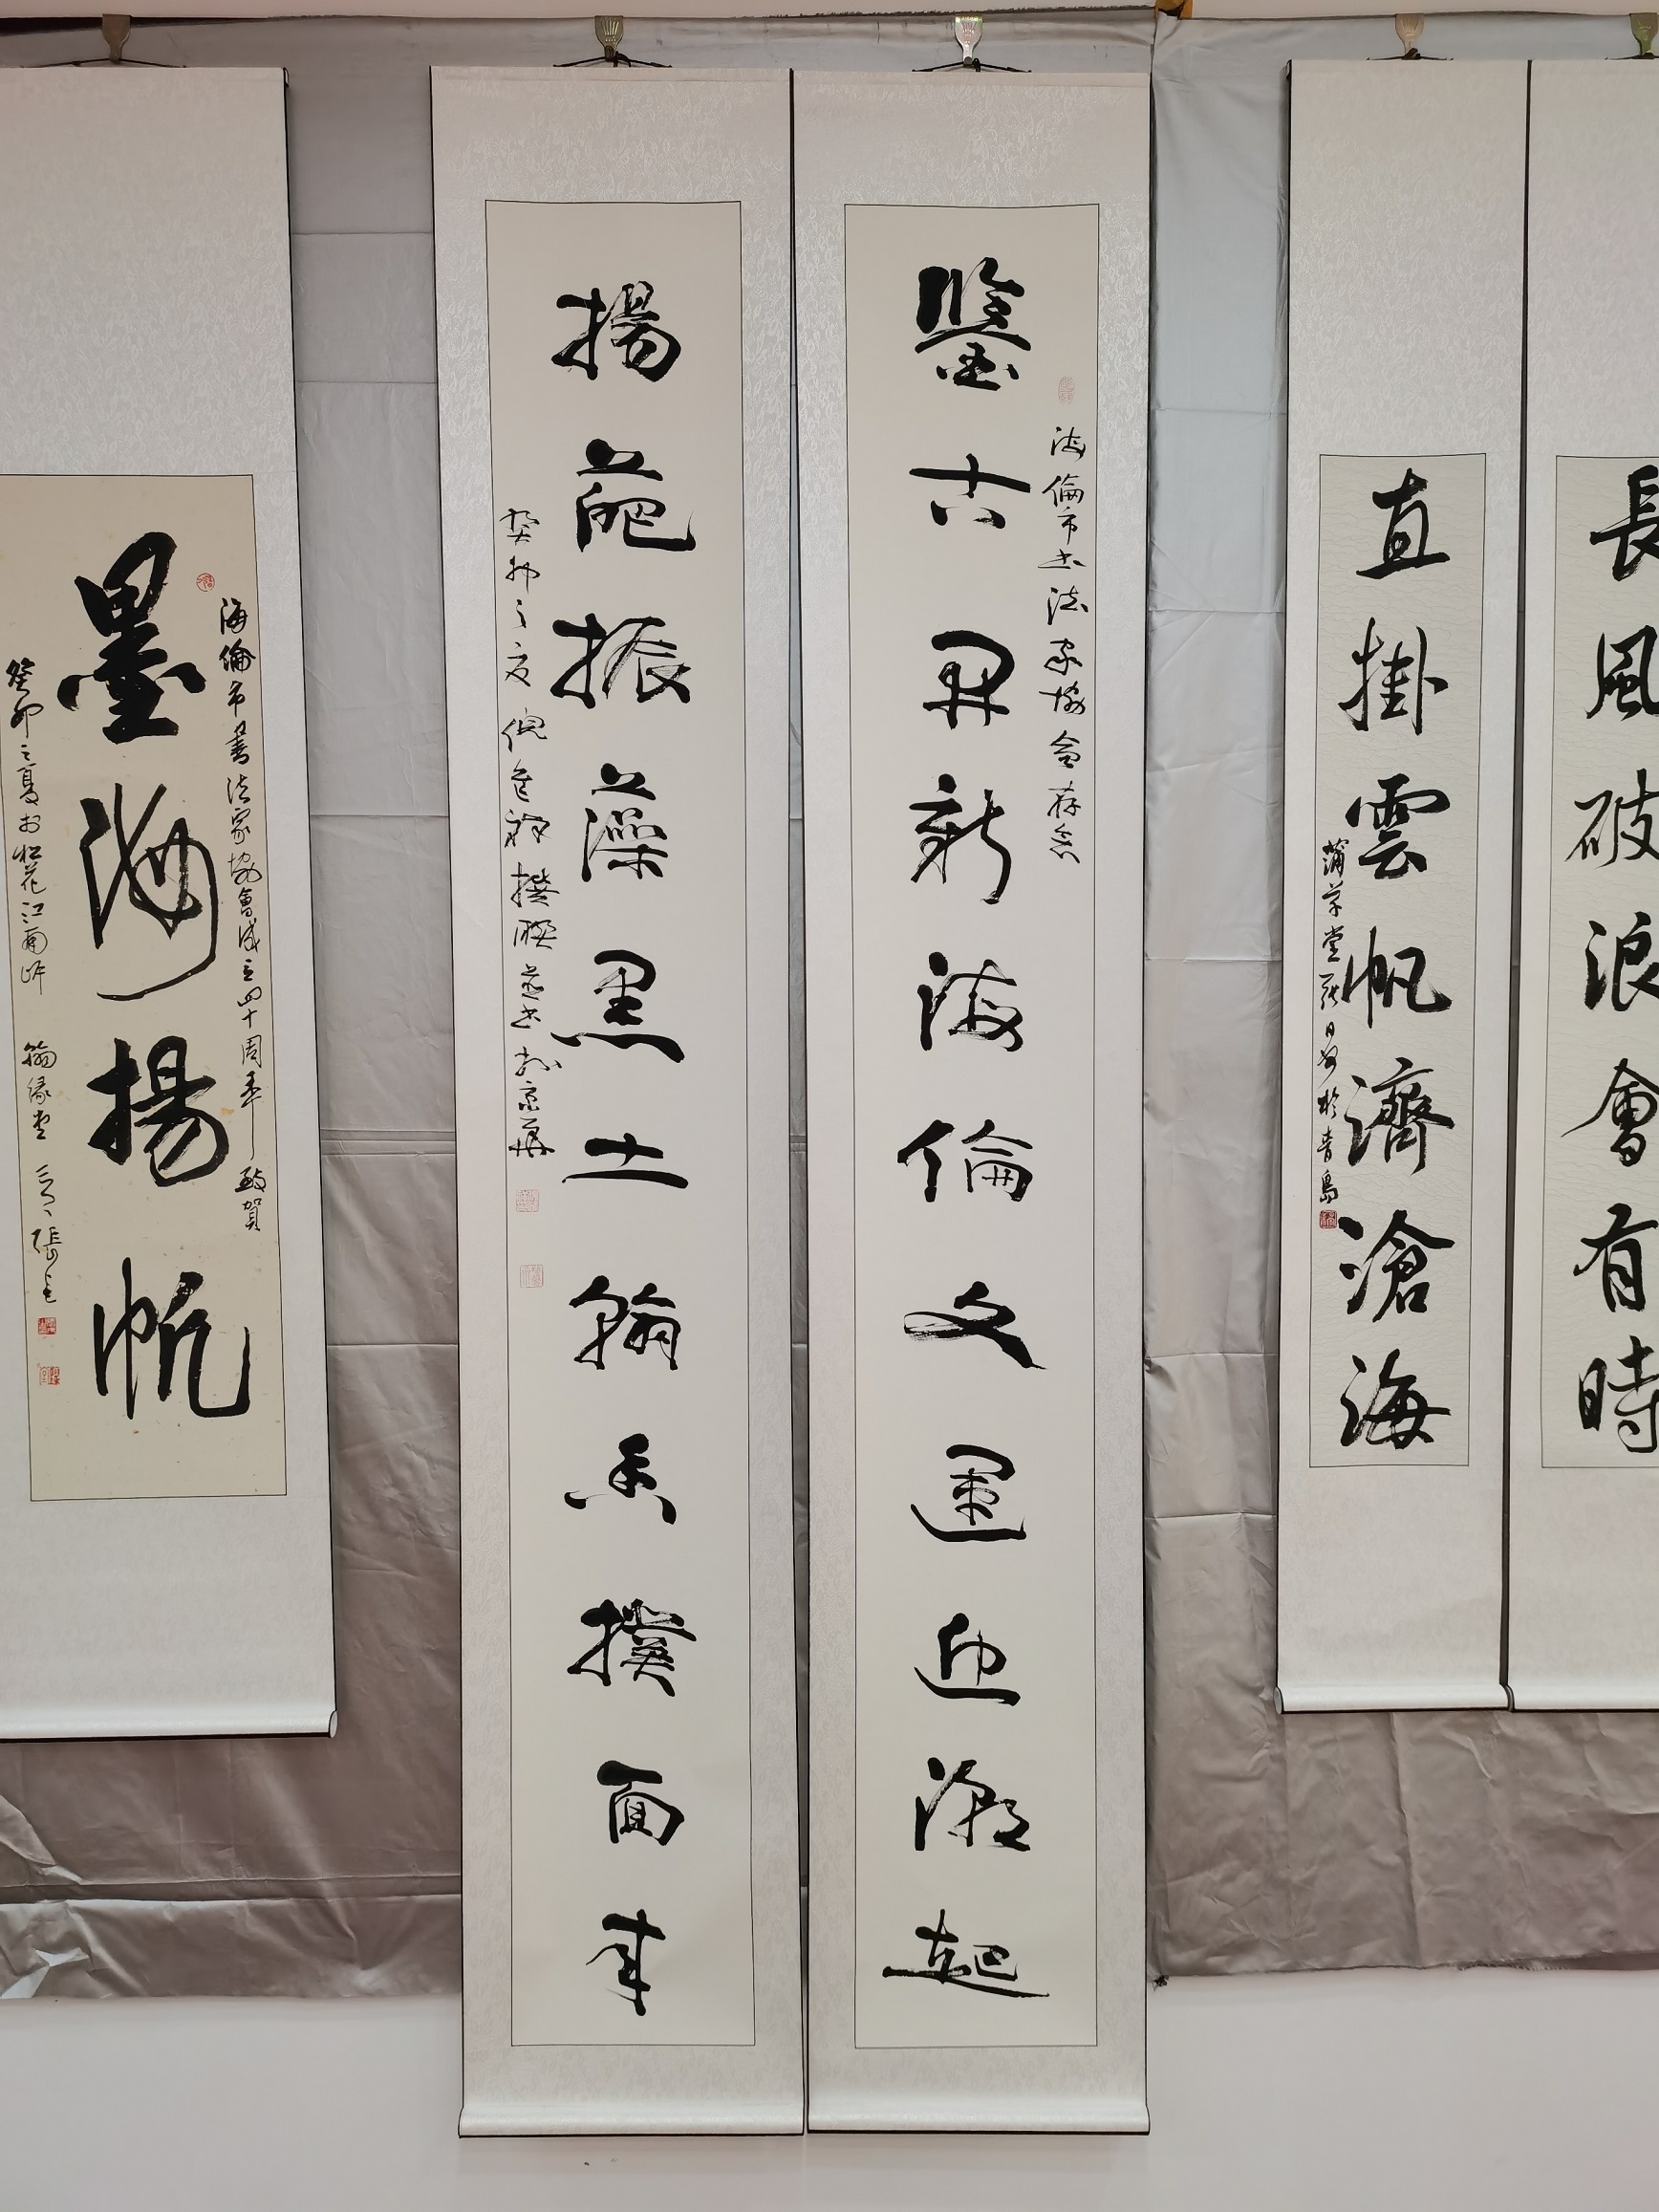 長風破浪會有時
直掛雲帆濟滄海
蒲草堂 日 於青島
海倫市书法家協會存念
鑒古開新海倫文運迎潮起
揚葩振藻黑土翰香撲面來
癸卯之夏倪進祥撰聯並书於京華
海倫市書法家協會成立四十周年致賀
墨海揚帆
癸卯之夏於松花江南岸 翰緣堂 張